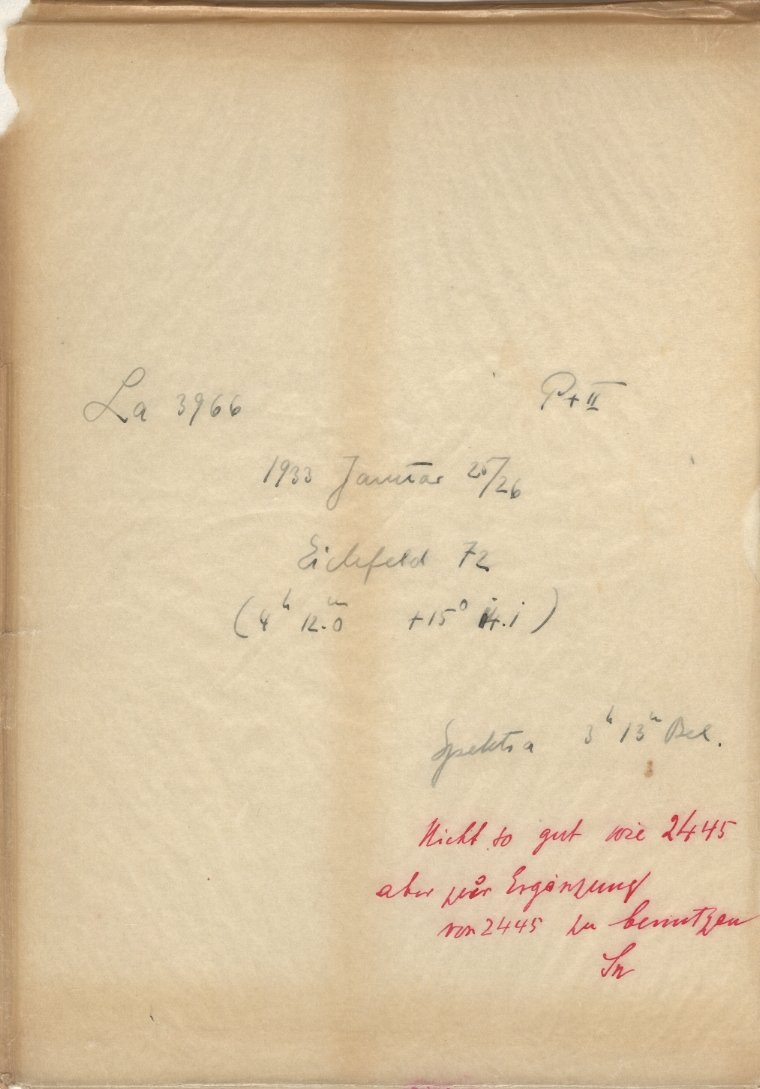 La 3966 P+II
1933 Januar 25/26
Eichfeld 72
(4h 12.m0 +15° 14.1)
Spektra 3h 13m Bel.
Nicht so gut wie 2445
aber zur Ergänzung
von 2445 zu benutzen